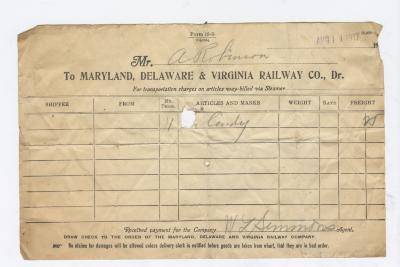 AUG 11 191
Mr. A Robinson
To MARYLAND, DELAWARE & VIRGINIA RAILWAY CO., Dr.
For transportation charges on articles way-billed via Steamer
SHIPPER FROM No. PKGS. ARTICLES AND MARKS WEIGHT RATE FREIGHT
1 Candy 25
Received payment for the Company W L Simmons Agent.
DRAW CHECK TO THE ORDER OF THE MARYLAND, DELAWARE AND VIRGINIA RAILWAY COMPANY.
No claims for damages will be allowed unless delivery clerk is notified before goods are taken from wharf, that they are in bad order.